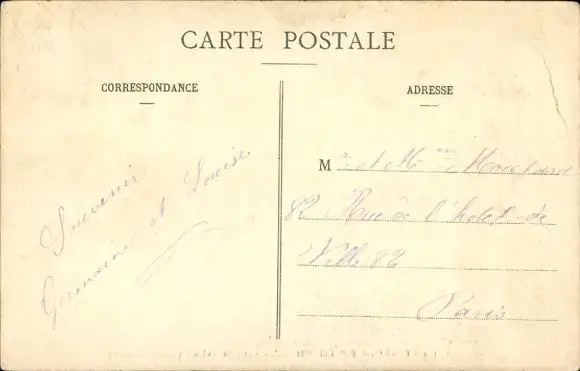 CARTE POSTALE
CORRESPONDANCE
ADRESSE
Souvenir
Germaine et Louise
Mr et Mme
82 Rue de l'hotel-de
Ville 82
Paris